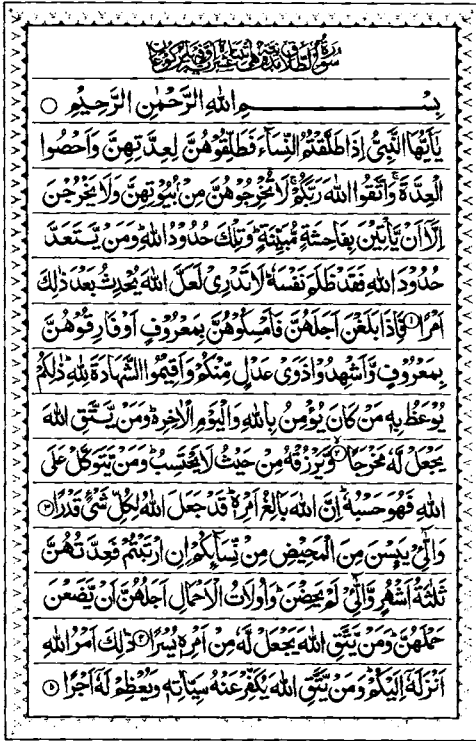 سُوْرَةُ الطَّلَاقِ مَدَنِيَّةٌ وَّهِيَ اثْنَتَا عَشْرَةَ اٰيَةً وَّفِيْهَا رُكُوْعَانِ
بِسْمِ اللهِ الرَّحْمٰنِ الرَّحِيْمِ
يٰۤاَيُّهَا النَّبِيُّ اِذَا طَلَّقْتُمُ النِّسَآءَ فَطَلِّقُوْهُنَّ لِعِدَّتِهِنَّ وَاَحْصُوا
الْعِدَّةَ ۚ وَاتَّقُوا اللهَ رَبَّكُمْ ۚ لَا تُخْرِجُوْهُنَّ مِنْۢ بُيُوْتِهِنَّ وَلَا يَخْرُجْنَ
اِلَّاۤ اَنْ يَّاْتِيْنَ بِفَاحِشَةٍ مُّبَيِّنَةٍ ؕ وَتِلْكَ حُدُوْدُ اللهِ ؕ وَمَنْ يَّتَعَدَّ
حُدُوْدَ اللهِ فَقَدْ ظَلَمَ نَفْسَهٗ ؕ لَا تَدْرِيْ لَعَلَّ اللهَ يُحْدِثُ بَعْدَ ذٰلِكَ
اَمْرًا ۝۱ فَاِذَا بَلَغْنَ اَجَلَهُنَّ فَاَمْسِكُوْهُنَّ بِمَعْرُوْفٍ اَوْ فَارِقُوْهُنَّ
بِمَعْرُوْفٍ وَّاَشْهِدُوْا ذَوَيْ عَدْلٍ مِّنْكُمْ وَاَقِيْمُوا الشَّهَادَةَ لِلّٰهِ ؕ ذٰلِكُمْ
يُوْعَظُ بِهٖ مَنْ كَانَ يُؤْمِنُ بِاللهِ وَالْيَوْمِ الْاٰخِرِ ؕ وَمَنْ يَّتَّقِ اللهَ
يَجْعَلْ لَّهٗ مَخْرَجًا ۝۲ وَّيَرْزُقْهُ مِنْ حَيْثُ لَا يَحْتَسِبُ ؕ وَمَنْ يَّتَوَكَّلْ عَلَى
اللهِ فَهُوَ حَسْبُهٗ ؕ اِنَّ اللهَ بَالِغُ اَمْرِهٖ ؕ قَدْ جَعَلَ اللهُ لِكُلِّ شَيْءٍ قَدْرًا ۝۳
وَالّٰٓـِٔيْ يَئِسْنَ مِنَ الْمَحِيْضِ مِنْ نِّسَآئِكُمْ اِنِ ارْتَبْتُمْ فَعِدَّتُهُنَّ
ثَلٰثَةُ اَشْهُرٍ وَّالّٰٓـِٔيْ لَمْ يَحِضْنَ ؕ وَاُولَاتُ الْاَحْمَالِ اَجَلُهُنَّ اَنْ يَّضَعْنَ
حَمْلَهُنَّ ؕ وَمَنْ يَّتَّقِ اللهَ يَجْعَلْ لَّهٗ مِنْ اَمْرِهٖ يُسْرًا ۝۴ ذٰلِكَ اَمْرُ اللهِ
اَنْزَلَهٗۤ اِلَيْكُمْ ؕ وَمَنْ يَّتَّقِ اللهَ يُكَفِّرْ عَنْهُ سَيِّاٰتِهٖ وَيُعْظِمْ لَهٗۤ اَجْرًا ۝۵